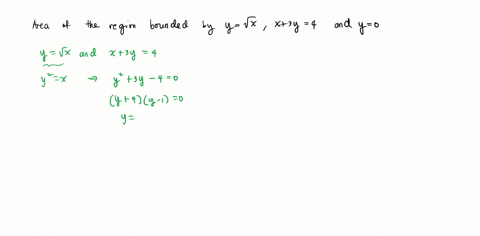 Area of the region bounded by y=√x , x+3y =4 and y=0
y = √x and x+3y = 4
y²=x → y²+3y-4=0
(y+4)(y-1)=0
y=